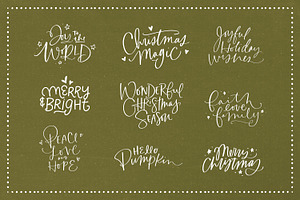 Joy to the
WORLD
Christmas
Magic
Joyful
Holiday
wishes
MERRY
& BRIGHT
Wonderful
CHRISTMAS
SEASON
faith
love
family
PEACE
LOVE
AND
HOPE
HELLO
Pumpkin
Merry
Christmas